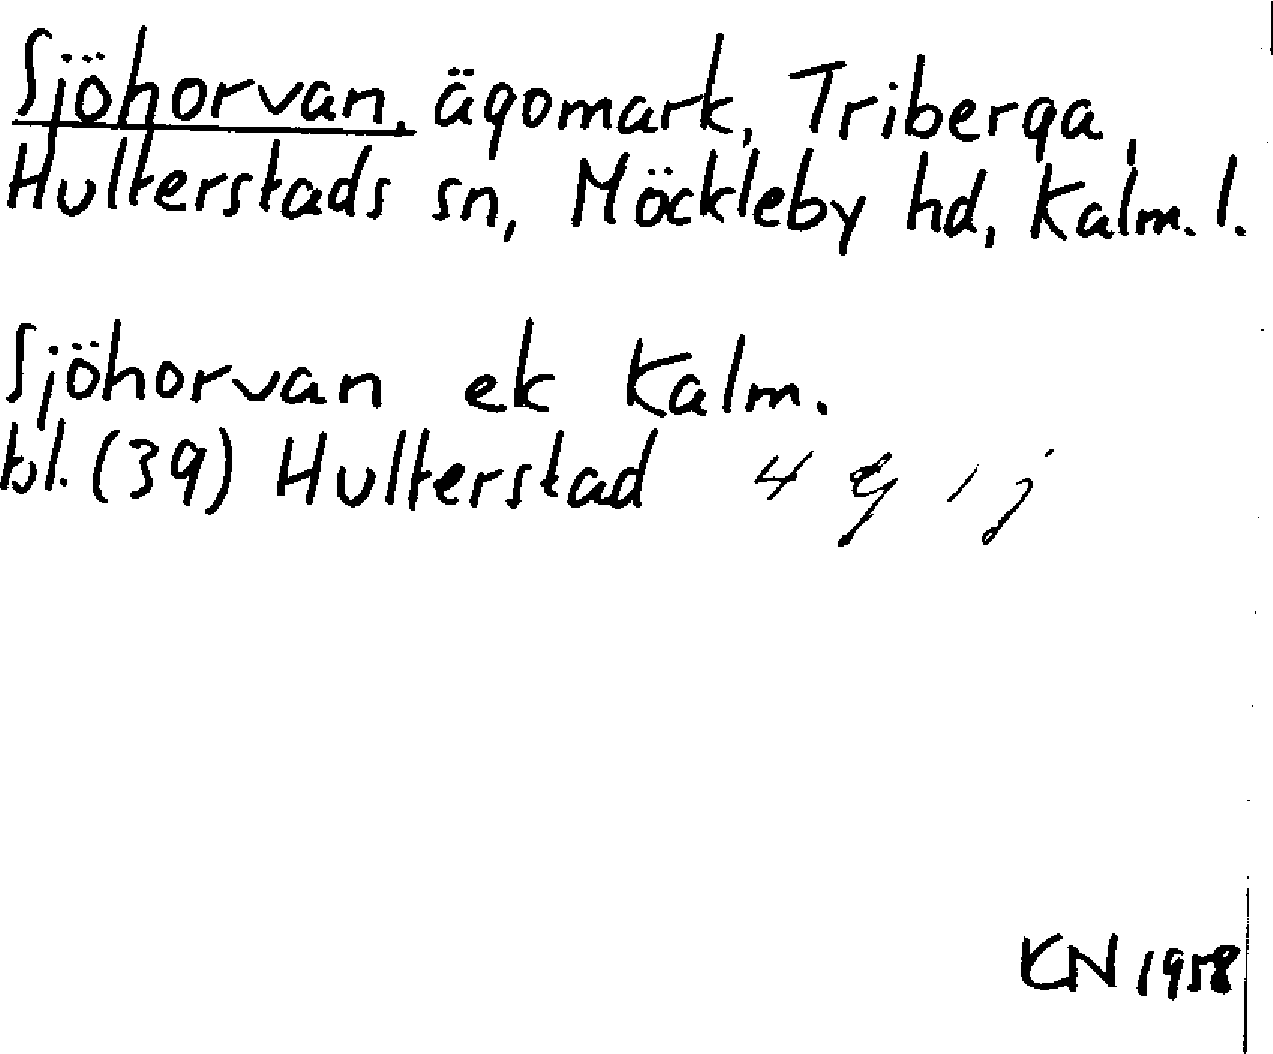 Sjöhorvan, ägomark, Triberga,
Hulterstads sn, Möckleby hd, Kalm. l.
Sjöhorvan ek Kalm.
bl. (39) Hulterstad 4 g 1 j
KN 1958